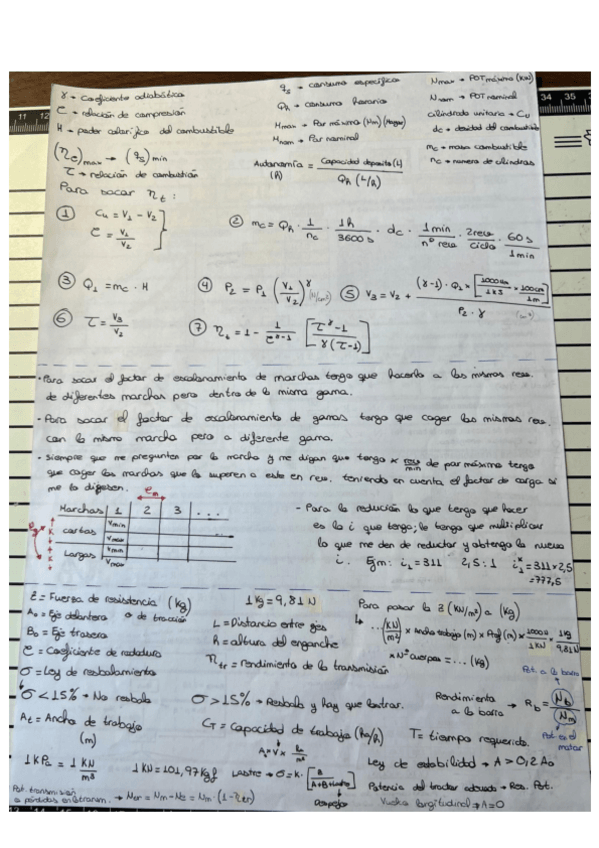 γ → Coeficiente adiabático
C → relación de compresión
H → poder calorífico del combustible
(ηe)max → (qs)min
τ → relación de combustión
qs → consumo específico
Qh → consumo horario
Mmax → Par máximo (Nm) (Mayor)
Mnom → Par nominal
Autonomía (h) = Capacidad deposito (L) / Qh (L/h)
Nmax → POT máxima (KW)
Nnom → POT nominal
cilindrada unitaria → Cu
dc → densidad del combustible
mc → masa combustible
nc → numero de cilindros
Para sacar ηt :
① Cu = V1 - V2
C = V1/V2
② mc = Qh · 1/nc · 1h/3600 s · dc · 1 min/nº revs · 2revs/ciclo · 60 s/1 min
③ Q1 = mc · H
④ P2 = P1 (V1/V2)^γ
⑤ V3 = V2 + (γ-1) · Q1 · [ · 100cm/1m] / P2 · γ
⑥ τ = V3/V2
⑦ ηt = 1 - 1/C^γ-1 [τ^γ - 1 / γ(τ-1)]
· Para sacar el factor de escalonamiento de marchas tengo que hacerlo a las mismas revs.
de diferentes marchas pero dentro de la misma gama.
· Para sacar el factor de escalonamiento de gamas tengo que coger las mismas rev.
con la misma marcha pero a diferente gama.
· Siempre que me pregunten por la marcha y me digan que tengo x rev/min de par máximo tengo
que coger las marchas que lo superen a este en rev. teniendo en cuenta el factor de carga si
me lo digesen.
em
Marchas | 1 | 2 | 3 | ...
cortas | Vmin
Vmax
Largas | Vmin
Vmax
eg
- Para la reducción lo que tengo que hacer
es la i que tengo; le tengo que multiplicar
lo que me den de reductor y obtengo la nueva
i. Ejm: i1 = 311 2,5:1 i1* = 311 x 2,5
= 777,5
Z = Fuerza de resistencia (kg)
A0 = Eje delantero o de tracción
B0 = Eje trasero
C = Coeficiente de rodadura
σ = Ley de resbalamiento
σ < 15% → No resbala
At = Ancho de trabajo
(m)
1 KPa = 1 KN/m²
1 Kg = 9,81 N
L = Distancio entre ejes
h = altura del enganche
ηtr = rendimiento de la transmisión
σ > 15% → Resbala y hay que lastrar.
CT = Capacidad de trabajo (ha/h)
1 KN = 101,97 Kgf
LASTRE → σ = K ·
Para pasar la Z (KN/m²) a (Kg)
↳ ... [KN/m²] x Ancho trabajo (m) x Prof (m) x 1000N/1KN x 1Kg/9,81N
x Nº cuerpos = ... (kg)
Pot. a la barra
Rendimiento a la barra → Rb = Nb/Nm
Pot. en el motor
T = tiempo requerido.
Ley de estabilidad → A > 0,2 A0
Potencia del tractor adecuado → Res. Pot.
Vuelco longitudinal → A = 0
Pot. transmisión
o pérdidas en la transm. → Ntr = Nm - Nz = Nm · (1 - ηtr)
Despejar